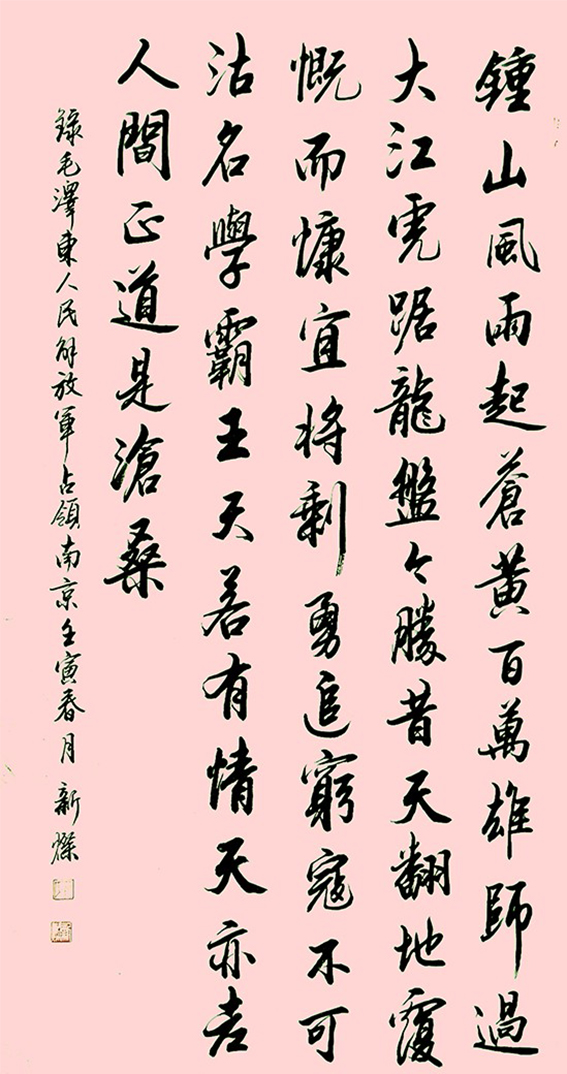 鍾山風雨起蒼黃百萬雄師過
大江虎踞龍盤今勝昔天翻地覆
慨而慷宜将剩勇追窮寇不可
沽名學霸王天若有情天亦老
人間正道是滄桑
錄毛澤東人民解放軍占領南京壬寅春月 新燦